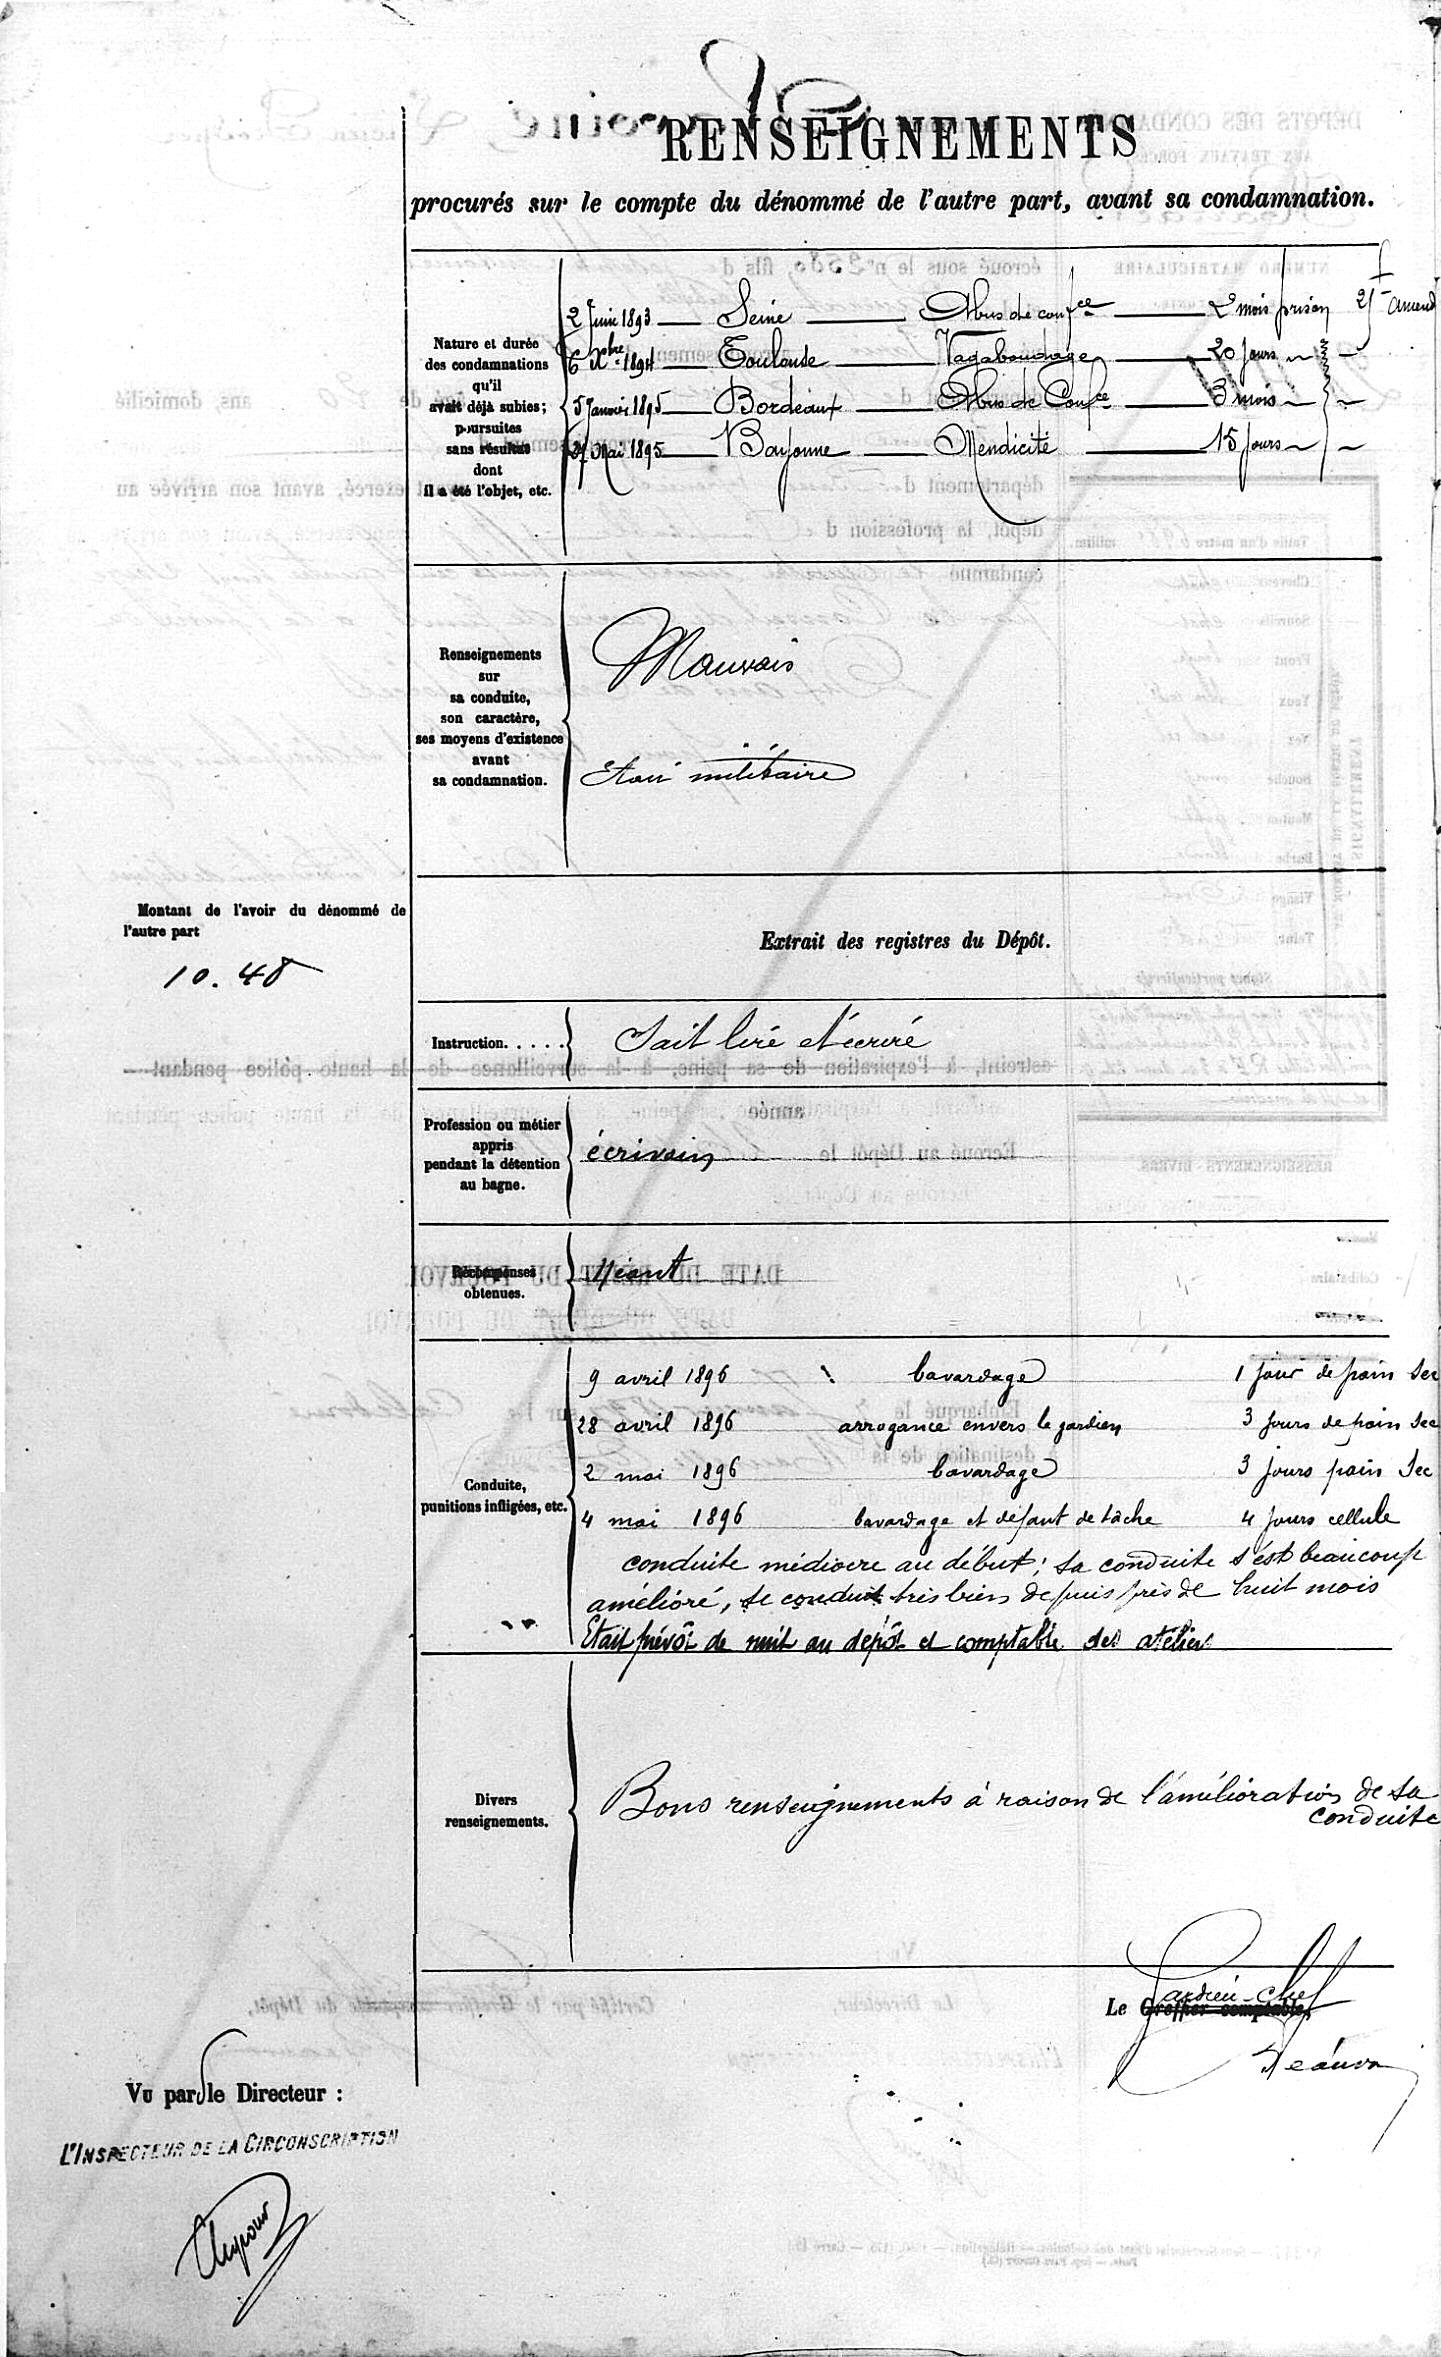 RENSEIGNEMENTS
procurés sur le compte du dénommé de l'autre part, avant sa condamnation.
Nature et durée
des condamnations
qu'il
avait déjà subies;
poursuites
sans résultat
dont
il a été l'objet, etc.
2 Juin 1893 — Seine — Abus de confce — 2 mois prison 25f amend
6 Xbre 1894 — Toulouse — Vagabondage — 20 jours
5 Janvier 1895 — Bordeaux — Abus de Confce — 3 mois
Mai 1895 — Bayonne — Mendicité — 15 jours
Renseignements
sur
sa conduite,
son caractère,
ses moyens d'existence
avant
sa condamnation.
Mauvais
Etait militaire
Montant de l'avoir du dénommé de
l'autre part
10.48
Extrait des registres du Dépôt.
Instruction.....
Sait liré et écriré
Profession ou métier
appris
pendant la détention
au bagne.
écrivain
Récompenses
obtenues.
Néant
Conduite,
punitions infligées, etc.
9 avril 1896 bavardage 1 jour de pain sec
28 avril 1896 arrogance envers le gardien 3 jours de pain sec
2 mai 1896 bavardage 3 jours pain sec
4 mai 1896 bavardage et défaut de tâche 4 jours cellule
conduite médiocre au début; sa conduite s'est beaucoup
amélioré, se conduit très bien depuis près de huit mois
Etait prévôt de nuit au dépôt et comptable des ateliers
Divers
renseignements.
Bons renseignements à raison de l'amélioration de sa
conduite
Gardien-Chef
Le Greffier comptable,
Vu par le Directeur :
L'INSPECTEUR DE LA CIRCONSCRIPTION